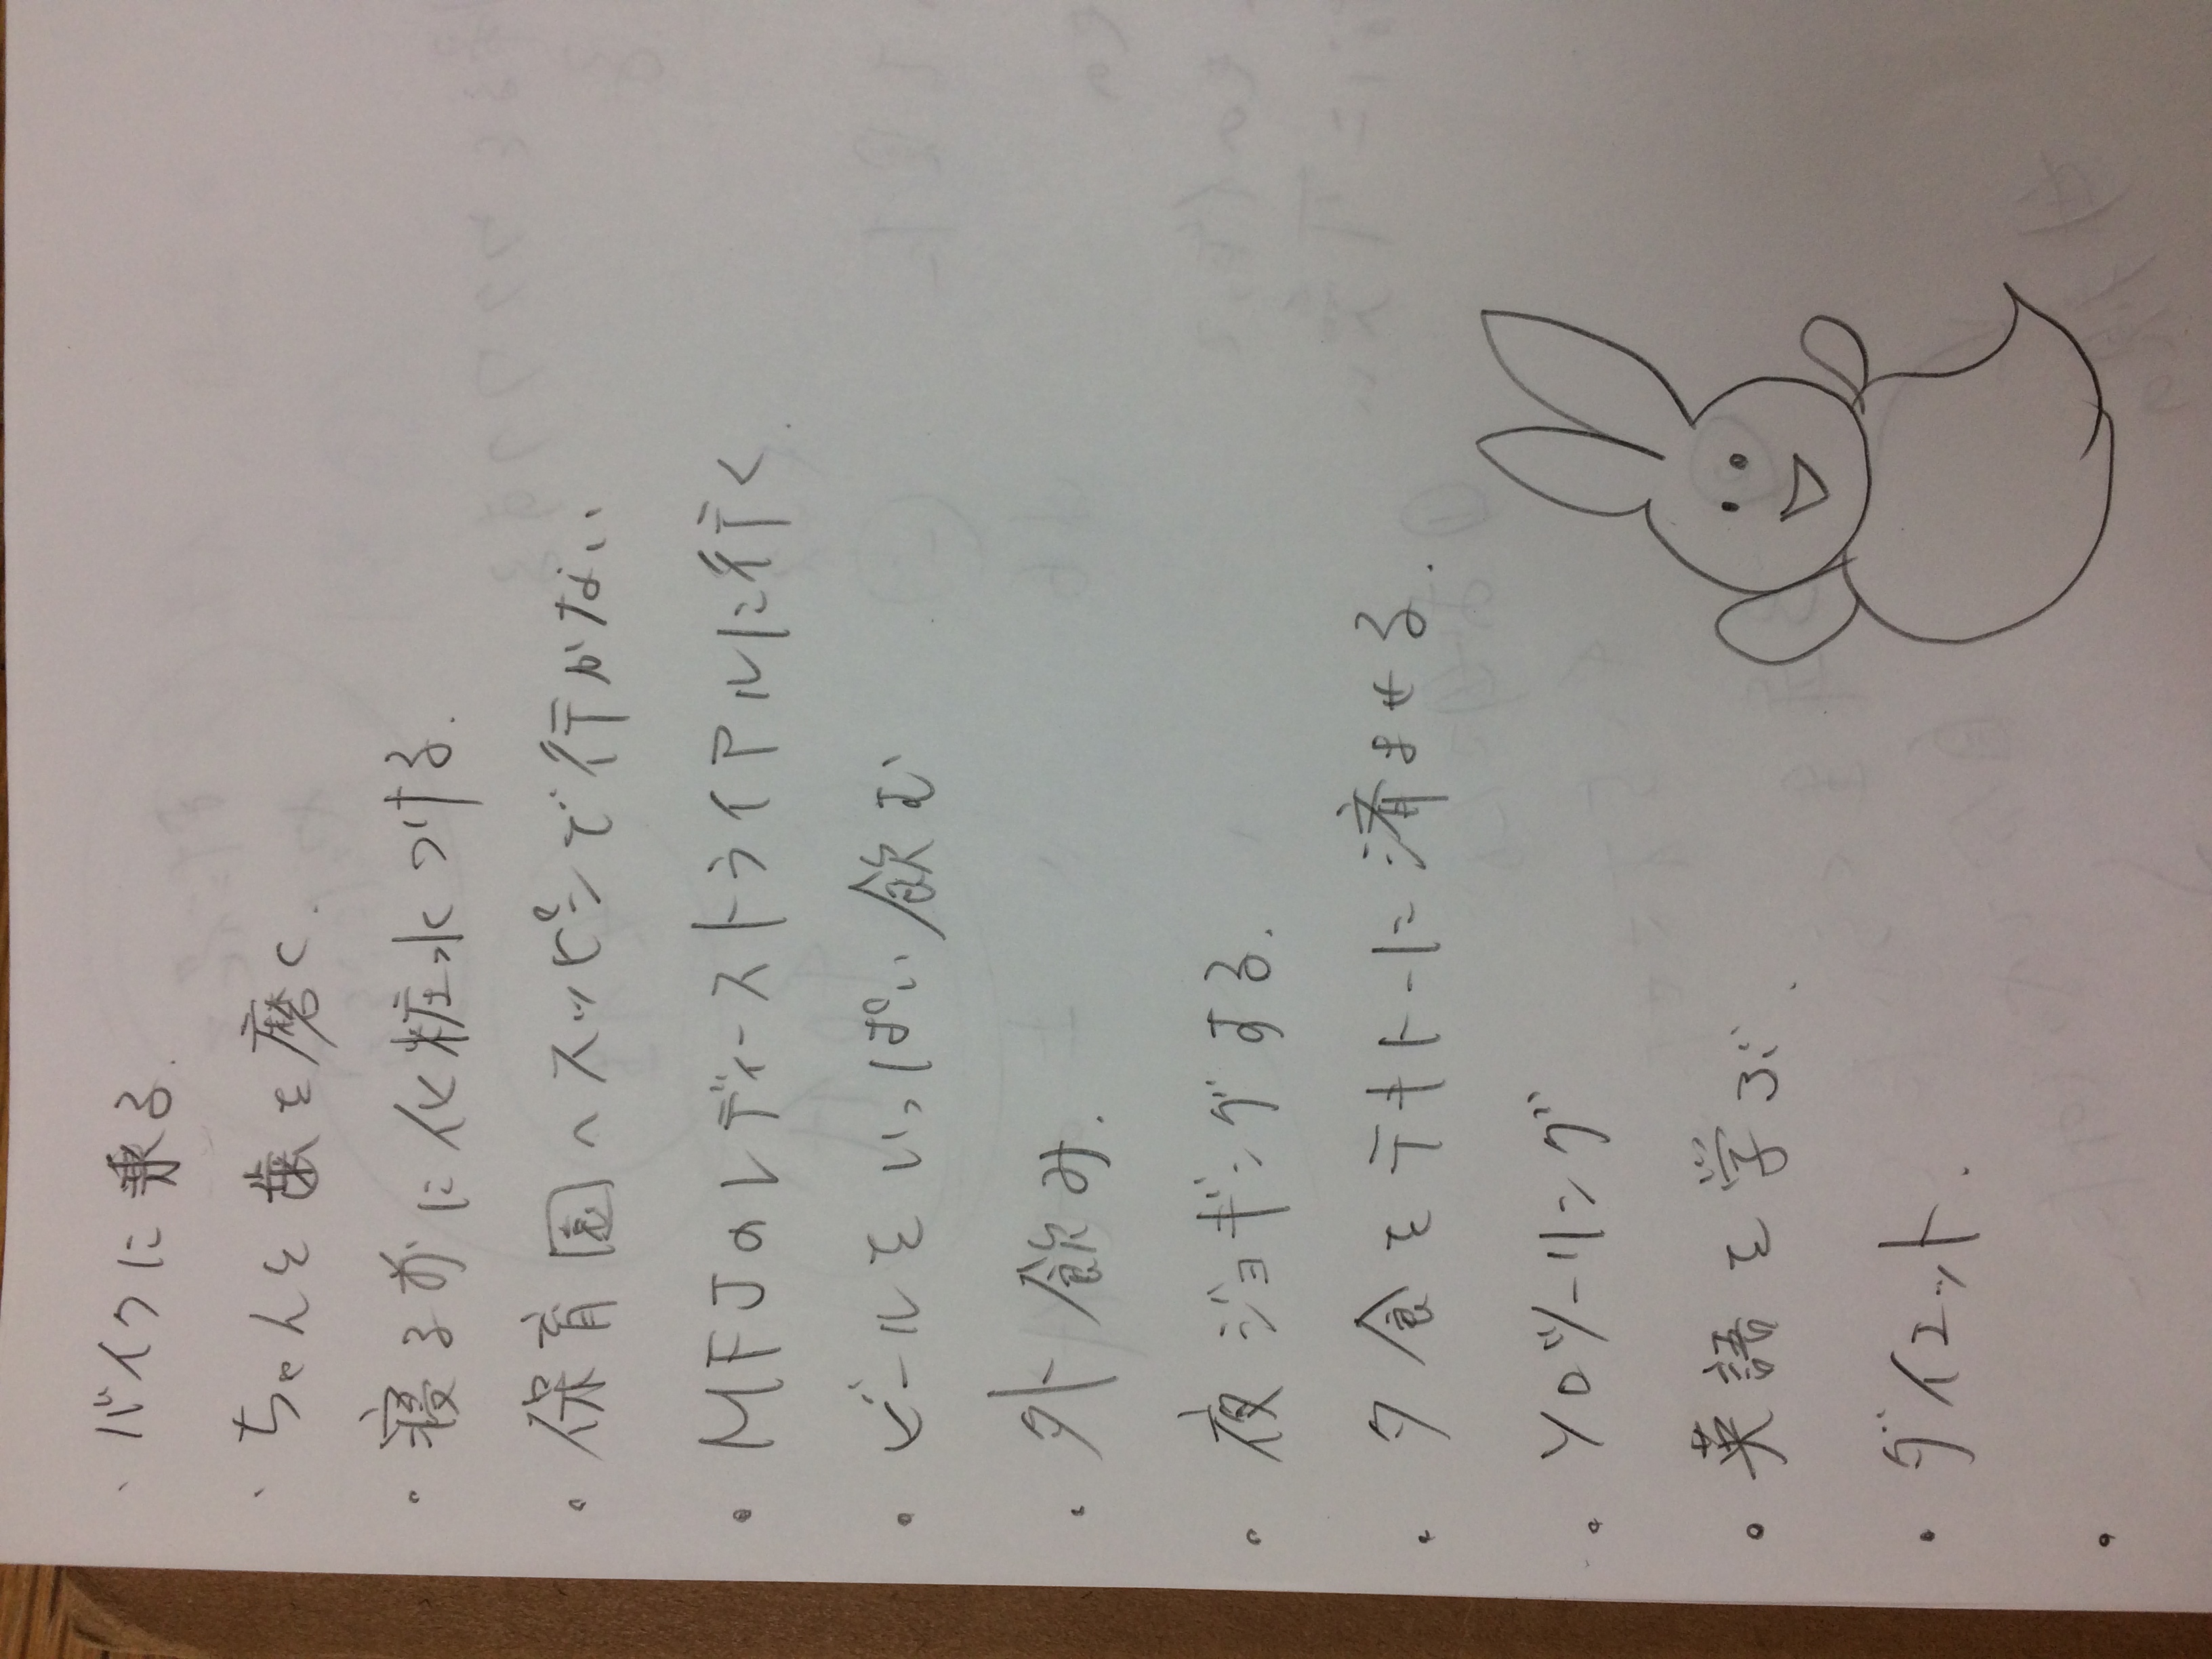 ・バイクに乗る.
・ちゃんと歯を磨く.
・寝る前に化粧水つける.
・保育園へスッピンで行かない.
・MFJのレディーストライアルに行く.
・ビールをいっぱい飲む
・外飲み.
・夜ジョギングする.
・夕食をテキトーに済ませる.
・ソロツーリング
・英語を学ぶ.
・ダイエット.
・